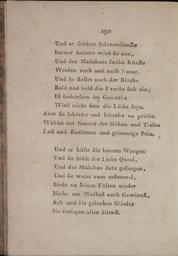 190
Und er fordert Sclavendienste
Immer heitrer wird sie nur,
Und des Mädchens frühe Künste
Werden nach und nach Natur.
Und so stellet nach der Blüthe
Bald und bald die Frucht sich ein;
Ist Gehorsam im Gemüthe
Wird nicht fern die Liebe seyn.
Aber sie schärfer und schärfer zu prüfen
Wählet der Kenner der Höhen und Tiefen
Lust und Entsetzen und grimmige Pein.
Und er küßt die bunten Wangen
Und sie fühlt der Liebe Qual,
Und das Mädchen steht gefangen,
Und sie weint zum erstenmal,
Sinkt zu seinen Füßen nieder
Nicht um Wollust noch Gewinnst,
Ach und die gelenken Glieder
Sie versagen allen Dienst.